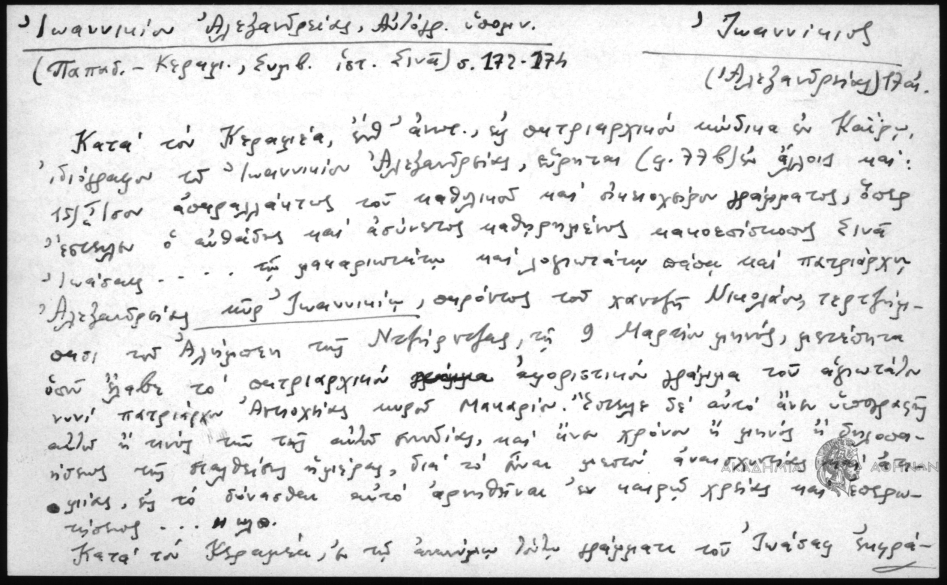 Ἰωαννικίου Ἀλεξανδρείας, Αὐτόγρ. ὑπομν. Ἰωαννίκιος
(Παπαδ. - Κεραμ., Συμβ. ἱστ. Σινᾶ) σ. 172-174 (Ἀλεξανδρείας) 17 αἰ.
Κατὰ τὸν Κεραμέα, ἔνθ' ἀνωτ., εἰς πατριαρχικὸν κώδικα ἐν Καΐρῳ,
ἰδιόγραφον τοῦ Ἰωαννικίου Ἀλεξανδρείας, εὕρηται (φ. 77β) ἐν ἄλλοις καὶ:
Ἴσον ἀπαραλλάκτως τοῦ καθολικοῦ καὶ οἰκειοχείρου γράμματος, ὅπερ
ἔστειλεν ὁ αὐθάδης καὶ ἀσύνετος καθῃρημένος κακοεπίσκοπος Σινᾶ
Ἰωάσαφ .... τῷ μακαριωτάτῳ καὶ λογιωτάτῳ πάπᾳ καὶ πατριάρχῃ
Ἀλεξανδρείας κὺρ Ἰωαννικίῳ, παρόντος τοῦ χαντζῆ Νικολάου, τερτζιμ-
πασι τοῦ Ἀλήμπεη τῆς Ντζίρντζας, τῇ 9 Μαρτίου μηνός, μετέπειτα
ἔλαβε τὸ πατριαρχικὸν ἀφοριστικὸν γράμμα τοῦ ἁγιωτάτου
νυνὶ πατριάρχου Ἀντιοχείας κυροῦ Μακαρίου. Ἔστειλε δὲ αὐτὸ ἄνευ ὑπογραφῆς
αὐτοῦ ἢ τινὸς τῶν τῆς αὐτοῦ συνοδίας, καὶ ἄνευ χρόνου ἢ μηνὸς ἢ δηλοποι-
ήσεως τῆς σταλθείσης ἡμέρας, διὰ τὸ εἶναι μεστὸν ἀναισχυντίας καὶ ἀτι-
μίας, εἰς τὸ δύνασθαι αὐτὸ ἀρνηθῆναι ἐν καιρῷ χρείας καὶ ἐπερω-
τήσεως ... κλπ.
Κατὰ τὸν Κεραμέα, ἐν τῷ ἀνωνύμῳ τούτῳ γράμματι τοῦ Ἰωάσαφ ἐκφρά-
ΑΚΑΔΗΜΙΑ ΑΘΗΝΩΝ